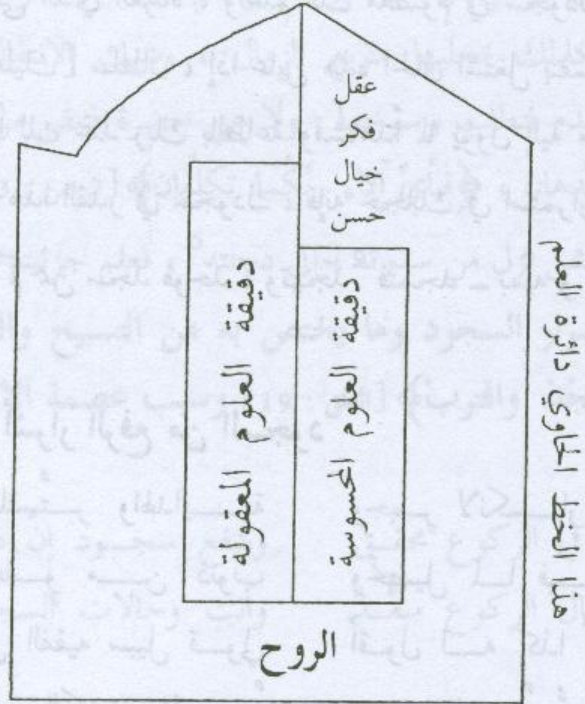 عقل
فكر
خيال
حسن
دقيقة العلوم المحسوسة
دقيقة العلوم المعقولة
الروح
هذا الخط الحاوي دائرة العلم